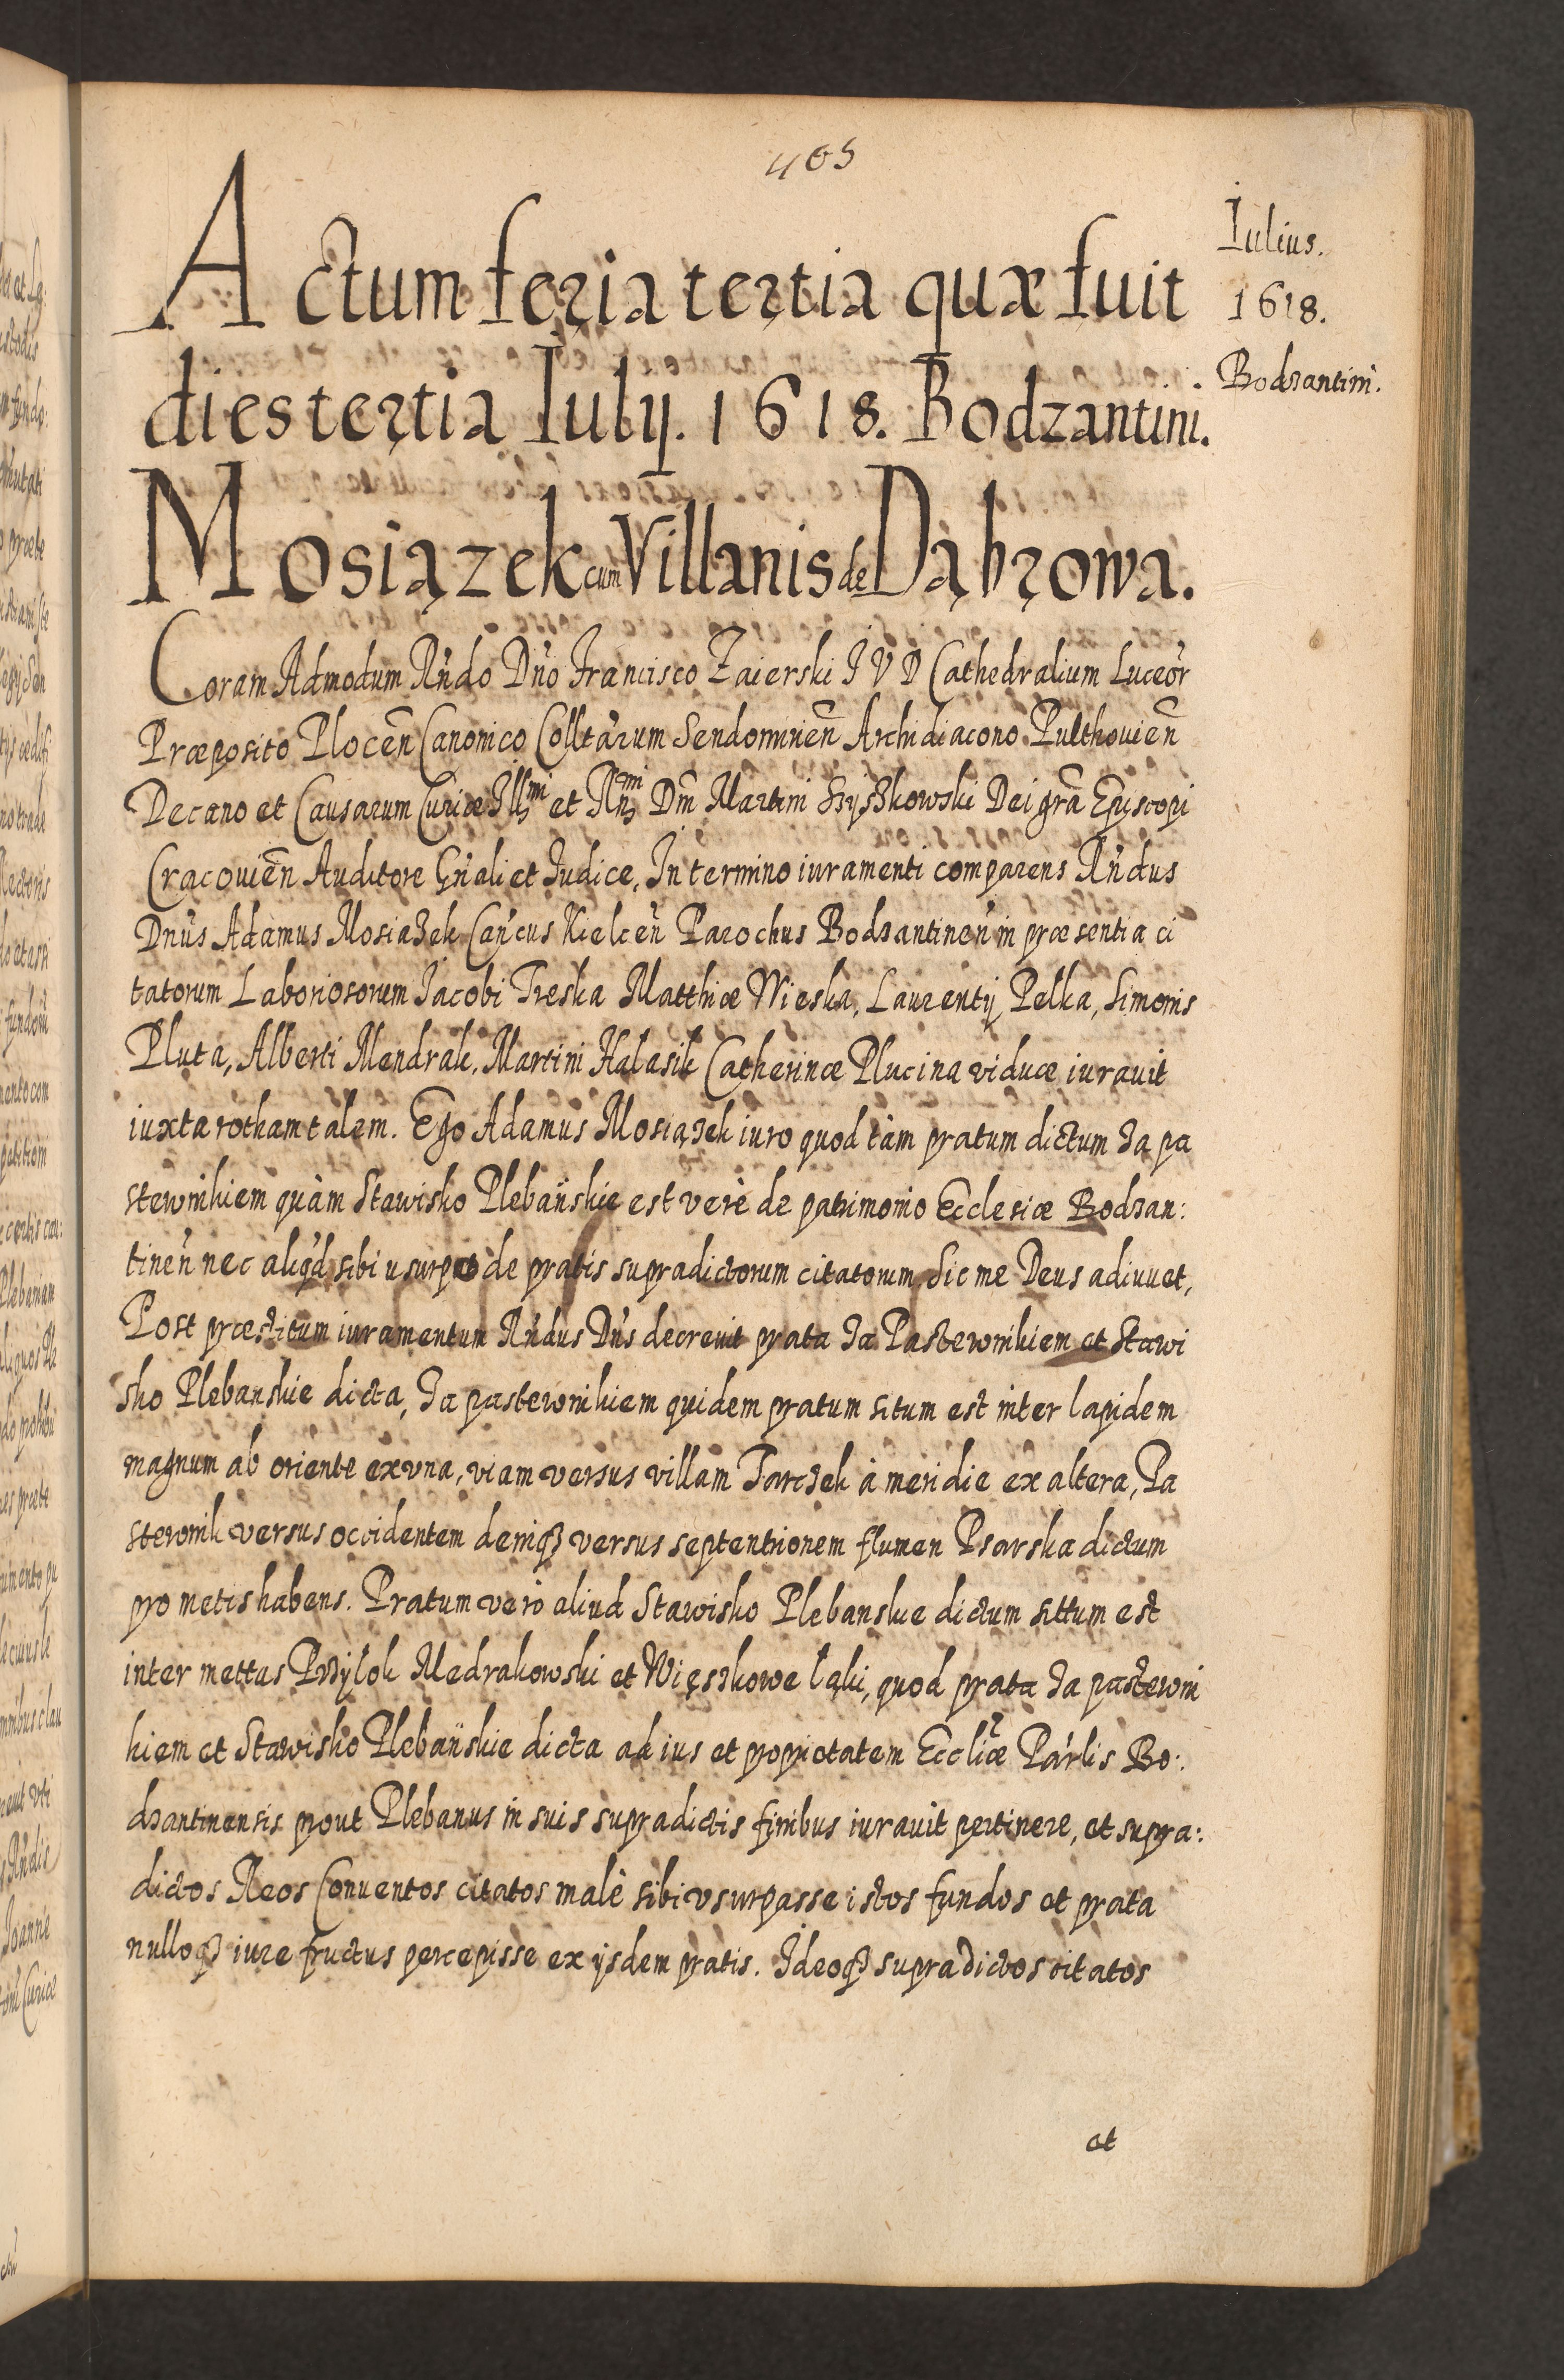 405
Iulius.
1618.
Bodzantini.
Actum feria tertia quæ fuit
dies tertia Iulij. 1618. Bodzantini.
Mosiązek cum Villanis de Dąbrowa.
Coram Admodum Rńdo Dńo Francisco Zaierski I V D Cathedralium Luceoŕ
Præposito Plocen̄ Canonico Colltárum Sendomirien̄ Archidiacono Pulthouien̄
Decano et Causarum Curiæ Illmi et Rmi Dn̄i Martini Szyszkowski Dei gra̅ Episcopi
Cracouien̄ Auditore Gńali et Iudice, In termino iuramenti comparens Rńdus
Dnús Adamus Mosiązek Cańcus Kielceń Parochus Bodzantineń in præsentia ci
tatorum Laboriosorum Jacobi Treska Matthiæ Wieska, Laurentij Pelka, Simonis
Pluta, Alberti Mendrak, Martini Halasik Catherinæ Plucina viduæ iurauit
iuxta rotham talem. Ego Adamus Mosiązek iuro quod tàm pratum dictum Za pa
stewnikiem quàm Stawisko Plebańskie est verè de patrimonio Ecclesiæ Bodzan:
tineń nec aliq́d sibi usurpat de pratis supradictorum citatorum, Sic me Deus adiuuet,
Post præstitum iuramentum Rńdus Dńs decreuit prata Za Pastewnikiem et Stawi
sko Plebanskie dicta, Za pastewnikiem quidem pratum situm est inter lapidem
magnum ab oriente ex vna, viam versus villam Tarczek à meridie ex altera, Pa
stewnik versus occidentem deniq3 versus septentrionem flumen Psarska dictum
pro metis habens. Pratum verò aliud Stawisko Plebanskie dictum sittum est
inter mettas Przÿlok Medrakowski et Więszkowe łąki, quod prata Za pastewni
kiem et Stawisko Plebańskie dicta ad ius et proprietatem Eccliæ Paŕlis Bo:
dzantinensis prout Plebanus in suis supradictis finibus iurauit pertinere, et supra:
dictos Reos Conuentos citatos malè sibi vsurpasse istos fundos et prata
nulloq3 iure fructus percepisse ex ijsdem pratis. Ideoq3 supradictos citatos
et